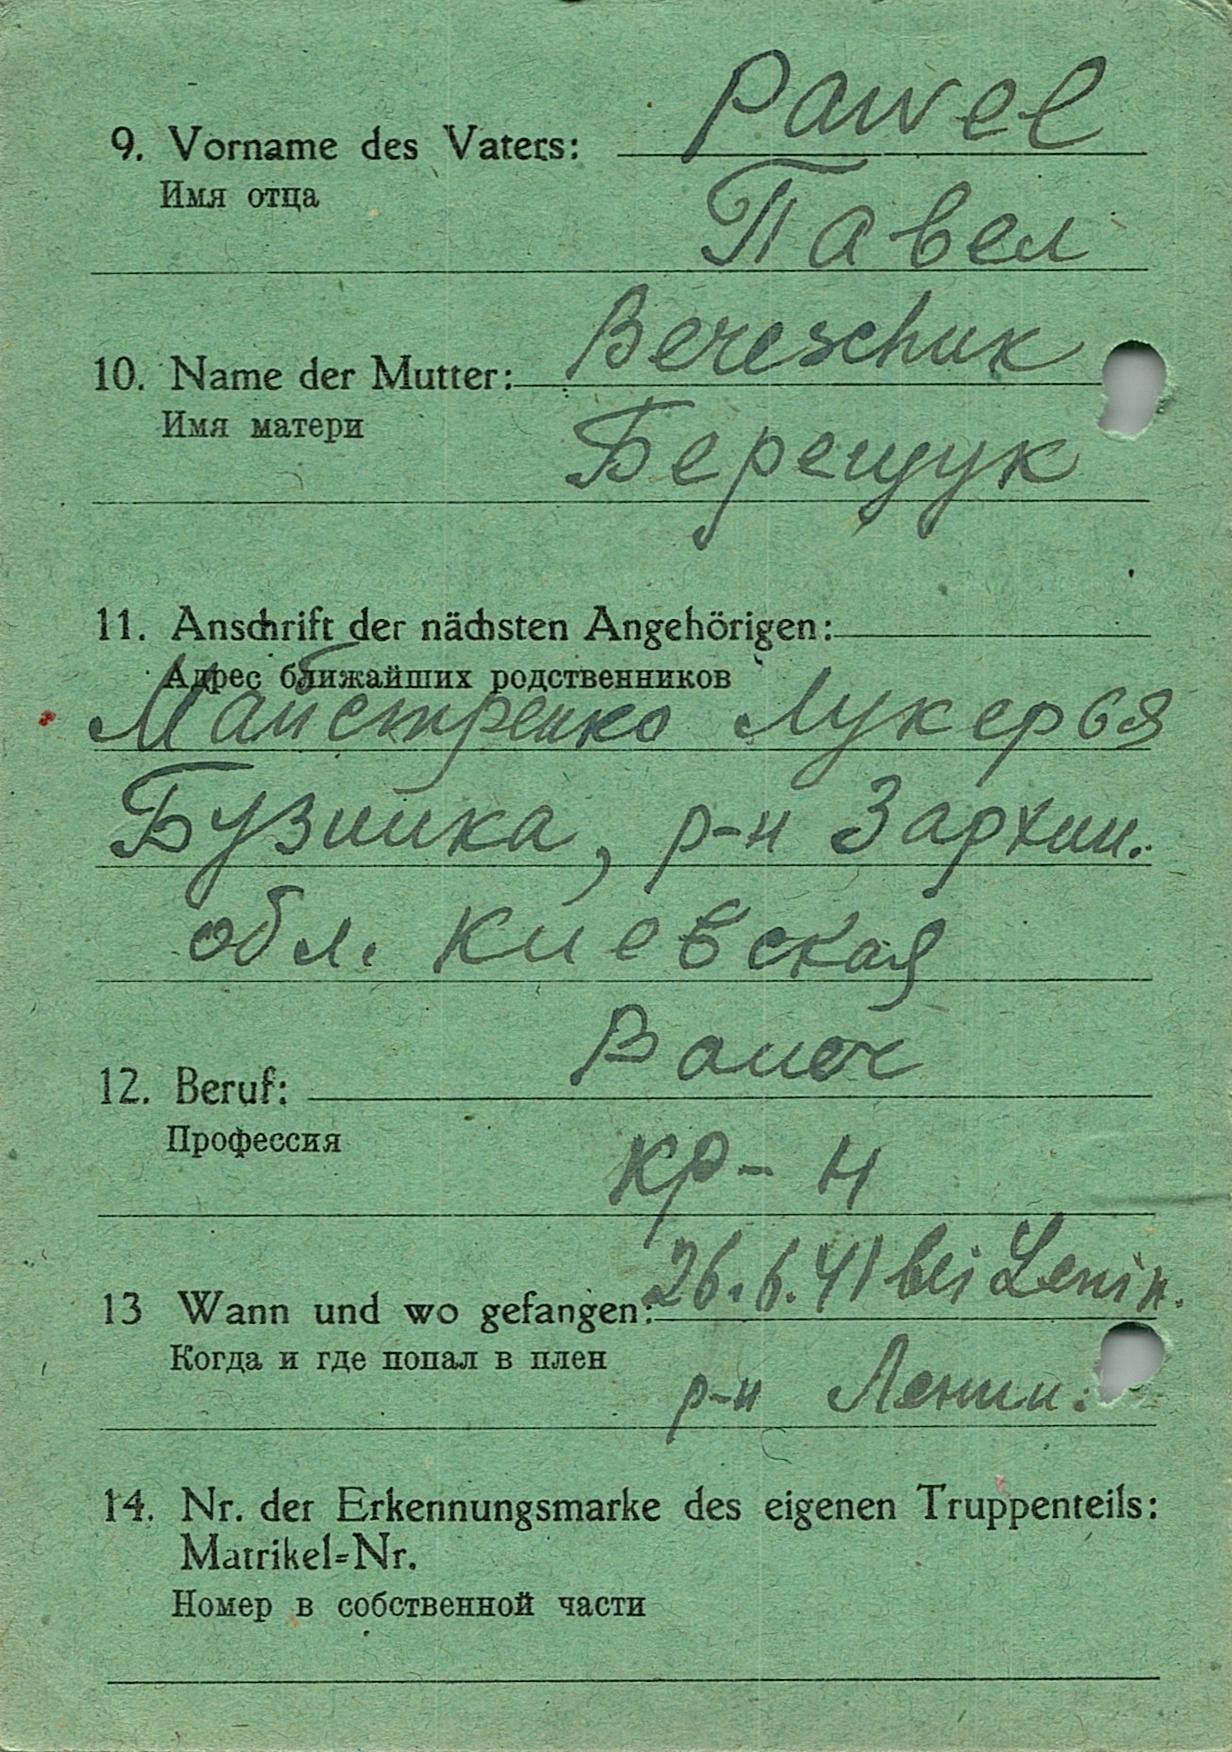 9. Vorname des Vaters: Pawel
Имя отца
Павел
10. Name der Mutter: Bereschuk
Имя матери
Берещук
11. Anschrift der nächsten Angehörigen:
Адрес ближайших родственников
Майстренко Лукерья
Бузийка, р-н Зархин.
обл. Киевская
12. Beruf: Bauer
Профессия
кр-н
13 Wann und wo gefangen: 26.6.41 bei Lenin.
Когда и где попал в плен
р-н Ленин.
14. Nr. der Erkennungsmarke des eigenen Truppenteils:
Matrikel=Nr.
Номер в собственной части